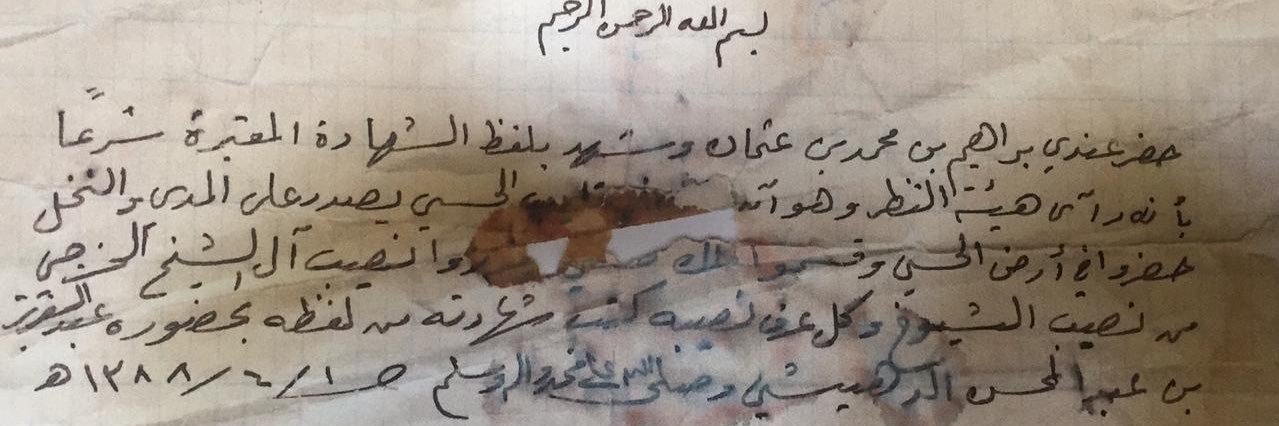 بسم الله الرحمن الرحيم
حضر عندي براهيم بن محمد بن عثمان وشهد بلفظ الشهادة المعتبرة شرعاً
بأنه رآى هيئة النظر وهو آنه الحسي يصدر على المدى والنخل
حضروا في أرض الحسي وقسموا الملك نصيب آل الشيخ الخرجي
من نصيب الشيوخ وكل عرف نصيبه كتب شهادته من لفظه بحضوره عبد العزيز
بن عبد المحسن الدهيشي وصلى الله على محمد وآله وسلم ١٣٨٨/٤/١ هـ